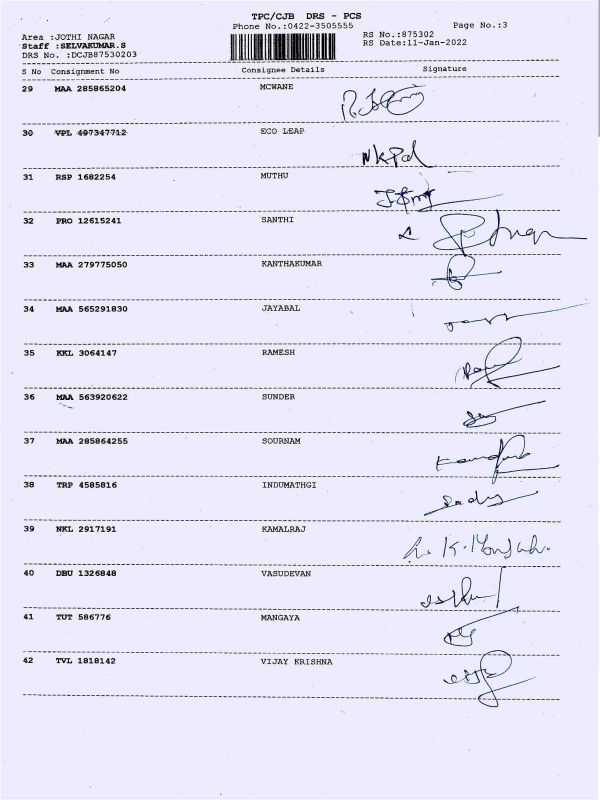 TPC/CJB DRS - PCS
Phone No.:0422-3505555 Page No.:3
Area :JOTHI NAGAR RS No.:875302
Staff :SELVAKUMAR.S RS Date:11-Jan-2022
DRS No. :DCJB87530203
S No Consignment No Consignee Details Signature
29 MAA 285865204 MCWANE
30 VPL 497347712 ECO LEAP
31 RSP 1682254 MUTHU
32 PRO 12615241 SANTHI
33 MAA 279775050 KANTHAKUMAR
34 MAA 565291830 JAYABAL
35 KKL 3064147 RAMESH
36 MAA 563920622 SUNDER
37 MAA 285864255 SOURNAM
38 TRP 4585816 INDUMATHGI
39 NKL 2917191 KAMALRAJ
40 DBU 1326848 VASUDEVAN
41 TUT 586776 MANGAYA
42 TVL 1818142 VIJAY KRISHNA